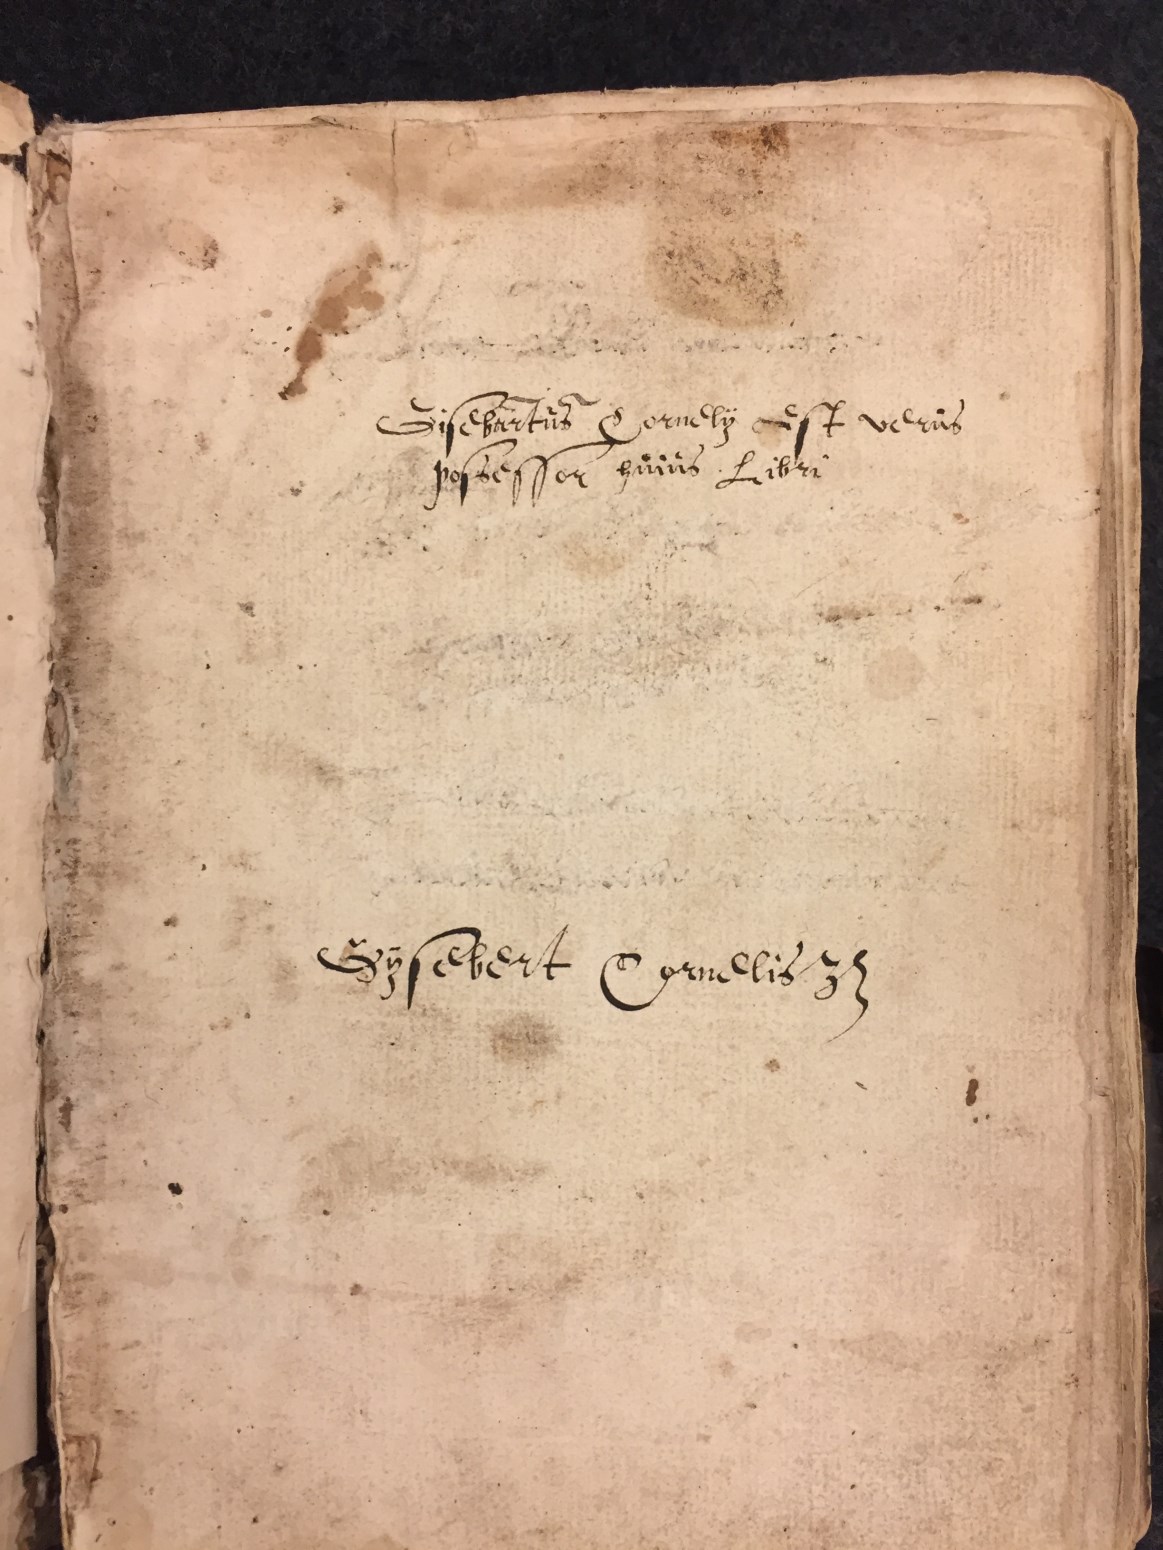 Gisebartus Cornelÿ Est verus
possessor huius Libri
Gÿsebert Cornelis zz